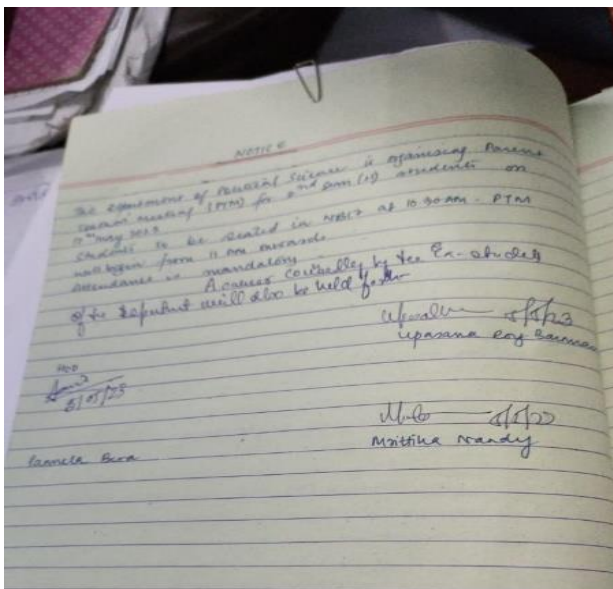 NOTICE
The Department of Political Science is organising Parent
Teacher Meeting (PTM) for 2nd Sem (H) students on
11th May 2023
Students to be seated in at 10.30 AM. PTM
will begin from 11 AM onwards
Attendance is mandatory.
A career by the Ex-students
of the Department will also be held
5/5/23
Upasana Roy Barman
HOD
5/05/23
5/5/23
Mrittika Nandy
Pamela Bera